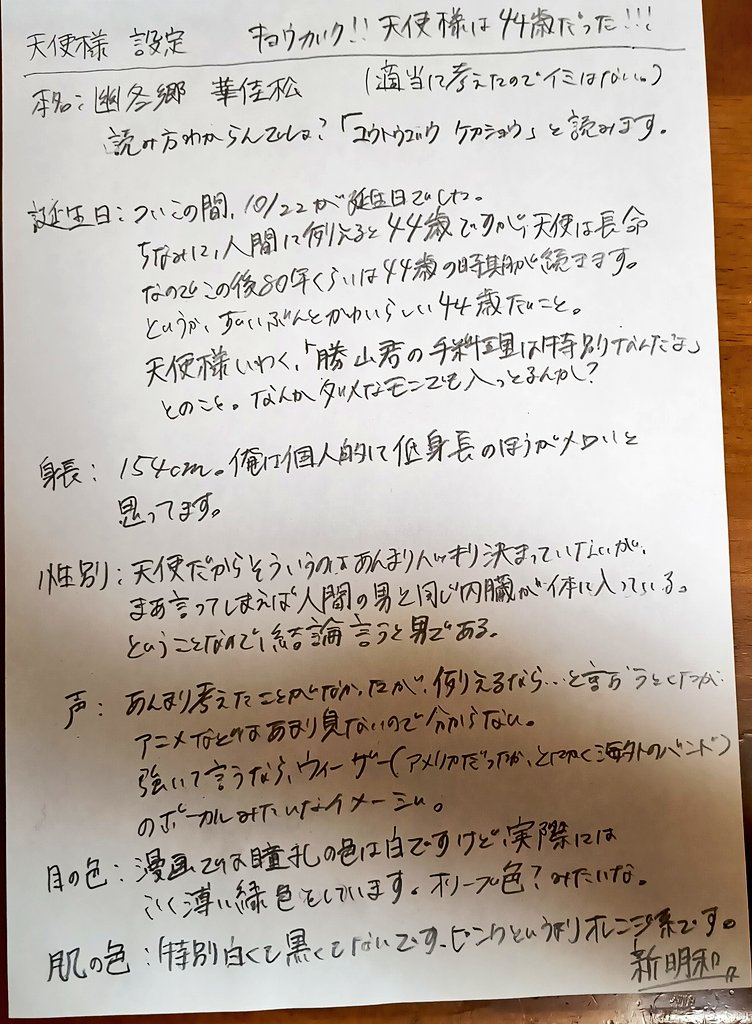 天使様 設定　キョウガク!! 天使様は44歳だった!!!
本名：幽冬郷 華佳松　（適当に考えたのでイミはない。）
読み方わからんでしょ？「ユウトウゴウ ケカショウ」と読みます。
誕生日：ついこの間、10/22が誕生日でした。
ちなみに、人間に例えると44歳ですが、天使は長命
なのでこの後80年くらいは44歳の時期が続きます。
というか、ずいぶんとかわいらしい44歳だこと。
天使様いわく、「勝山君の手料理は特別なんだよ」
とのこと。なんかダメなモンでも入っとるんか？
身長：154cm。俺は個人的に低身長のほうがメロいと
思ってます。
性別：天使だからそういうのはあんまりハッキリ決まっていないが、
まあ言ってしまえば人間の男と同じ内臓が体に入っている。
ということなので、結論言うと男である。
声：あんまり考えたことがなかったが、例えるなら…と言おうとしたが
アニメなどはあまり見ないので分からない。
強いて言うなら、ウィーザー（アメリカだったか、とにかく海外のバンド）
のボーカルみたいなイメージ。
目の色：漫画では瞳孔の色は白ですけど、実際には
ごく薄い緑色をしています。オリーブ色？みたいな。
肌の色：特別白くも黒くもないです、ピンクというよりオレンジ系です。
新明和